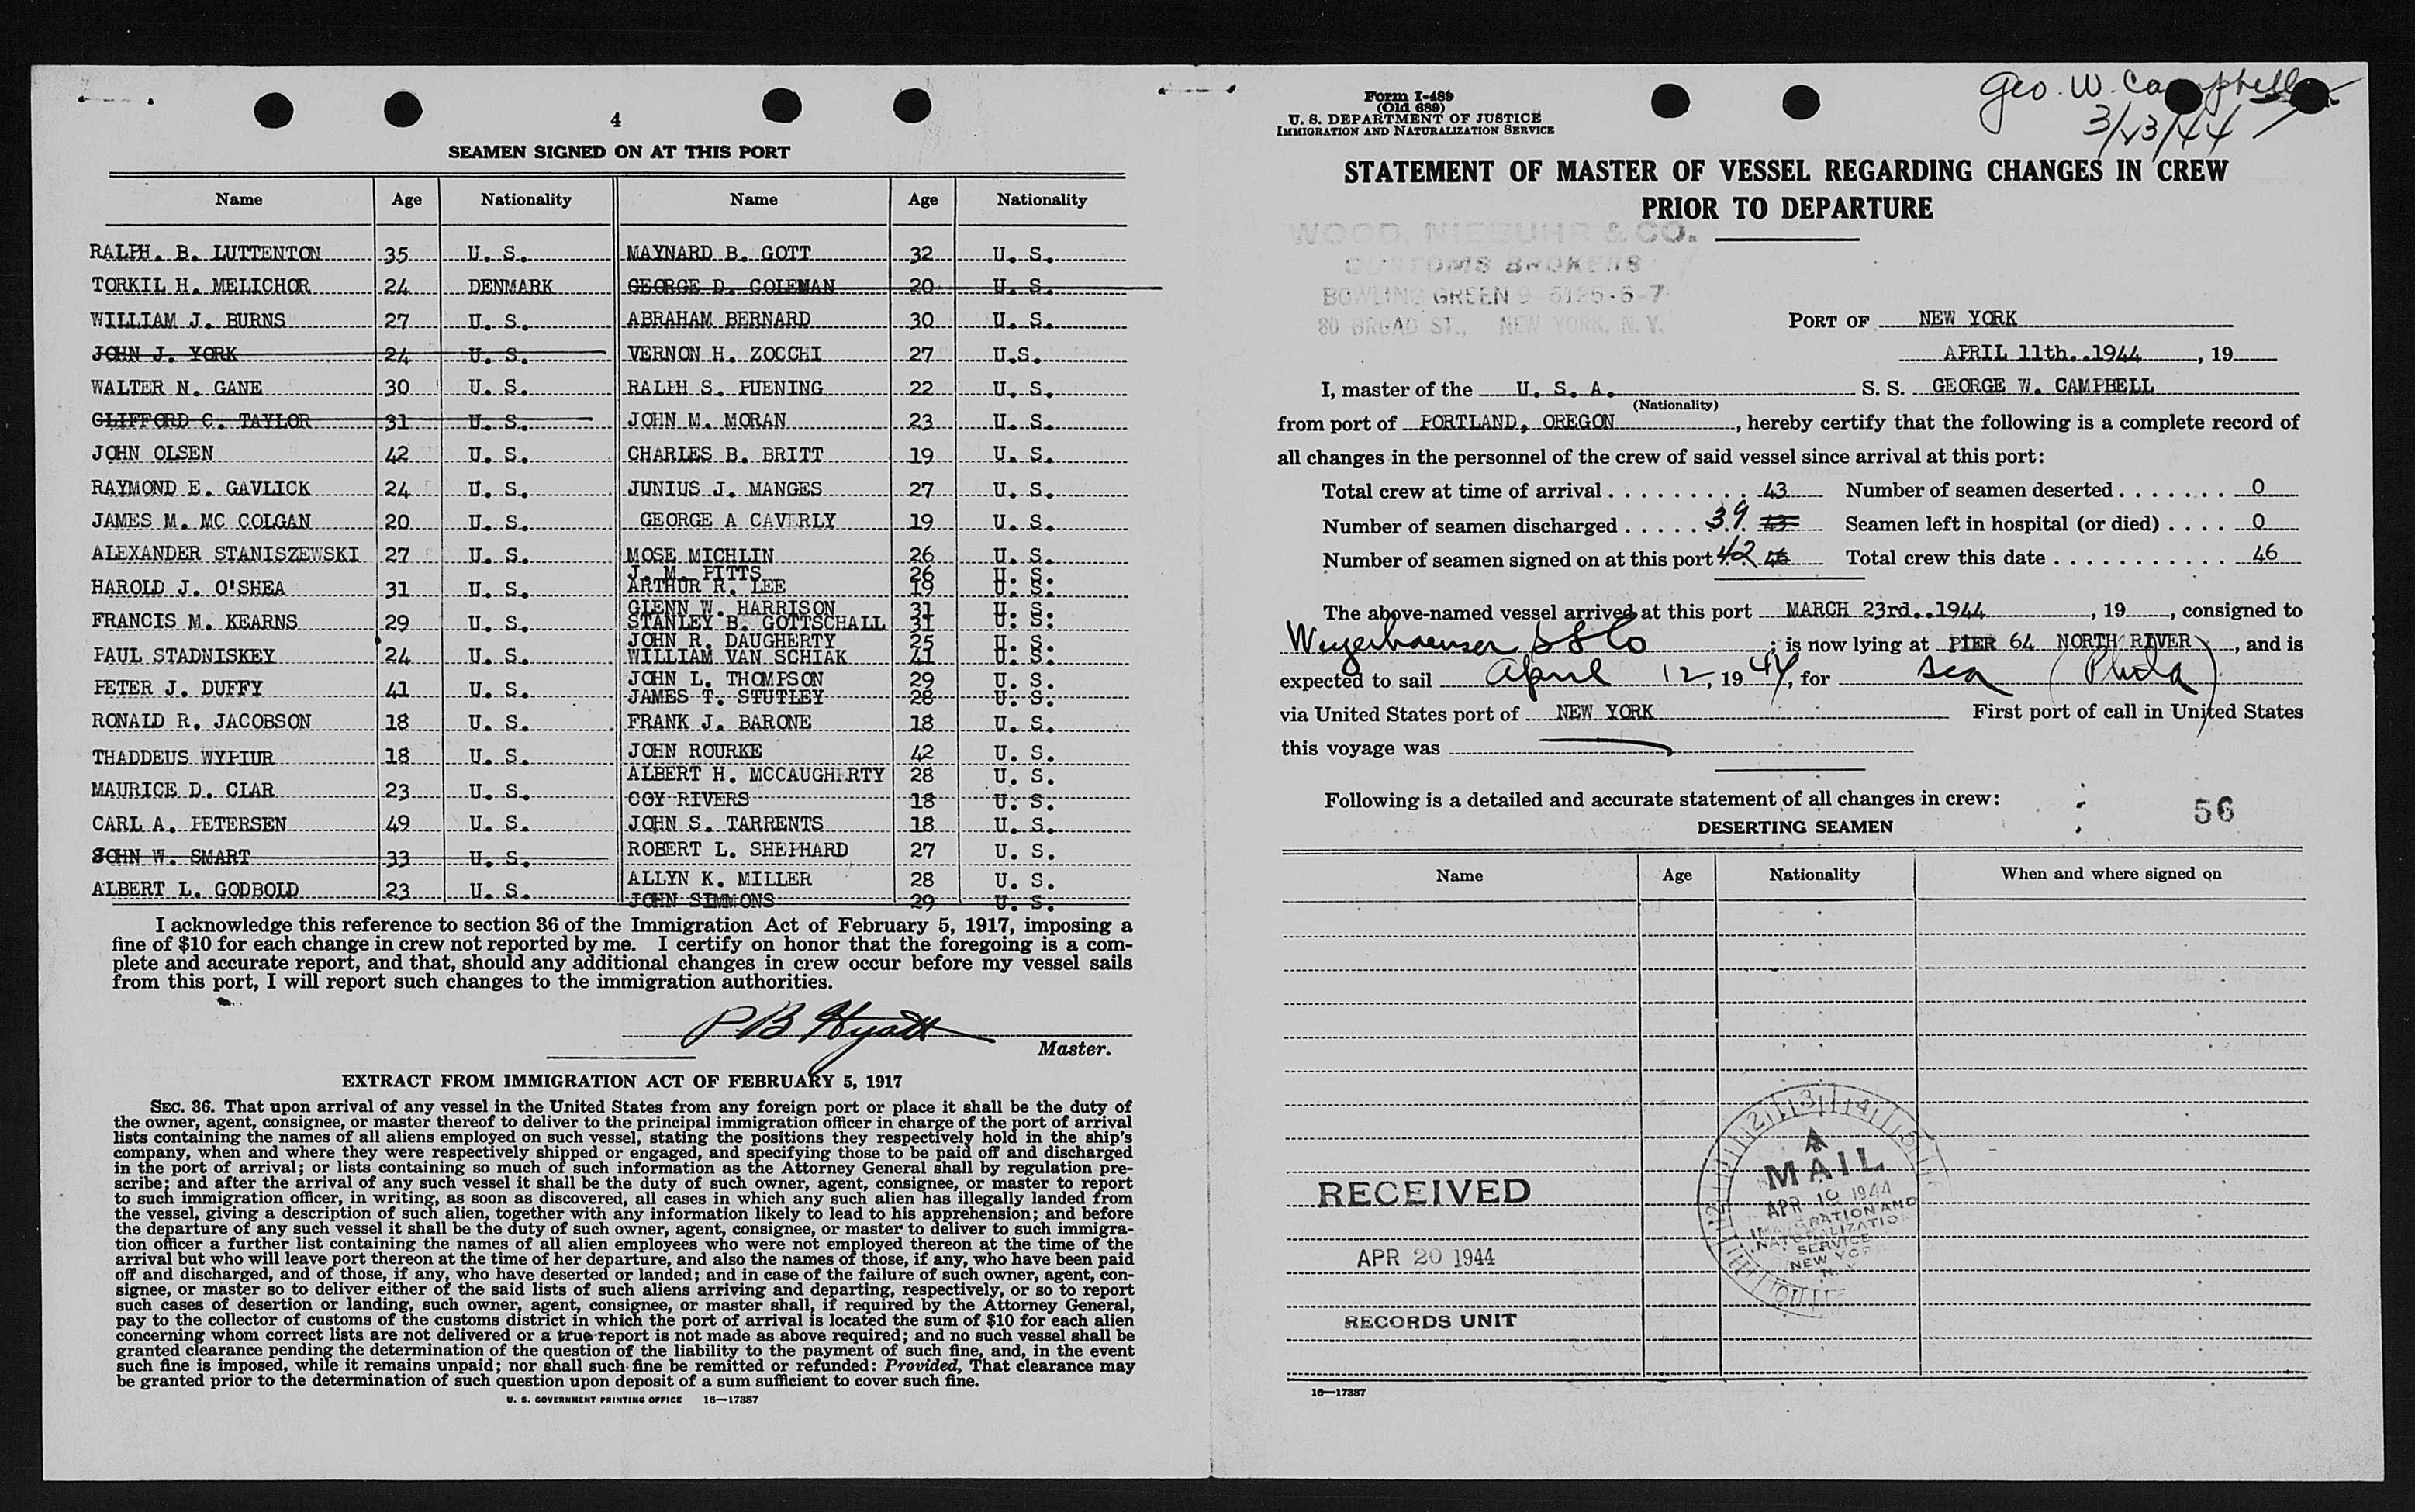 4
SEAMEN SIGNED ON AT THIS PORT
Name Age Nationality Name Age Nationality
RALPH. B. LUTTENTON 35 U. S. MAYNARD B. GOTT 32 U. S.
TORKIL H. MELICHOR 24 DENMARK GEORGE D. COLEMAN 20 U. S.
WILLIAM J. BURNS 27 U. S. ABRAHAM BERNARD 30 U. S.
JOHN J. YORK 24 U. S. VERNON H. ZOCCHI 27 U.S.
WALTER N. GANE 30 U. S. RALPH S. PUENING 22 U. S.
CLIFFORD C. TAYLOR 31 U. S. JOHN M. MORAN 23 U. S.
JOHN OLSEN 42 U. S. CHARLES B. BRITT 19 U. S.
RAYMOND E. GAVLICK 24 U. S. JUNIUS J. MANGES 27 U. S.
JAMES M. MC COLGAN 20 U. S. GEORGE A CAVERLY 19 U. S.
ALEXANDER STANISZEWSKI 27 U. S. MOSE MICHLIN 26 U. S.
J. M. PITTS 26 U. S.
HAROLD J. O'SHEA 31 U. S. ARTHUR R. LEE 19 U. S.
GLENN W. HARRISON 31 U. S.
FRANCIS M. KEARNS 29 U. S. STANLEY B. GOTTSCHALL 31 U. S.
JOHN R. DAUGHERTY 25 U. S.
PAUL STADNISKEY 24 U. S. WILLIAM VAN SCHIAK 41 U. S.
JOHN L. THOMPSON 29 U. S.
PETER J. DUFFY 41 U. S. JAMES T. STUTLEY 28 U. S.
RONALD R. JACOBSON 18 U. S. FRANK J. BARONE 18 U. S.
THADDEUS WYPIUR 18 U. S. JOHN ROURKE 42 U. S.
ALBERT H. MCCAUGHERTY 28 U. S.
MAURICE D. CLAR 23 U. S. COY RIVERS 18 U. S.
CARL A. PETERSEN 49 U. S. JOHN S. TARRENTS 18 U. S.
JOHN W. SMART 33 U. S. ROBERT L. SHEPHARD 27 U. S.
ALBERT L. GODBOLD 23 U. S. ALLYN K. MILLER 28 U. S.
JOHN SIMMONS 29 U. S.
I acknowledge this reference to section 36 of the Immigration Act of February 5, 1917, imposing a
fine of $10 for each change in crew not reported by me. I certify on honor that the foregoing is a com-
plete and accurate report, and that, should any additional changes in crew occur before my vessel sails
from this port, I will report such changes to the immigration authorities.
P B Hyatt
Master.
EXTRACT FROM IMMIGRATION ACT OF FEBRUARY 5, 1917
SEC. 36. That upon arrival of any vessel in the United States from any foreign port or place it shall be the duty of
the owner, agent, consignee, or master thereof to deliver to the principal immigration officer in charge of the port of arrival
lists containing the names of all aliens employed on such vessel, stating the positions they respectively hold in the ship's
company, when and where they were respectively shipped or engaged, and specifying those to be paid off and discharged
in the port of arrival; or lists containing so much of such information as the Attorney General shall by regulation pre-
scribe; and after the arrival of any such vessel it shall be the duty of such owner, agent, consignee, or master to report
to such immigration officer, in writing, as soon as discovered, all cases in which any such alien has illegally landed from
the vessel, giving a description of such alien, together with any information likely to lead to his apprehension; and before
the departure of any such vessel it shall be the duty of such owner, agent, consignee, or master to deliver to such immigra-
tion officer a further list containing the names of all alien employees who were not employed thereon at the time of the
arrival but who will leave port thereon at the time of her departure, and also the names of those, if any, who have been paid
off and discharged, and of those, if any, who have deserted or landed; and in case of the failure of such owner, agent, con-
signee, or master so to deliver either of the said lists of such aliens arriving and departing, respectively, or so to report
such cases of desertion or landing, such owner, agent, consignee, or master shall, if required by the Attorney General,
pay to the collector of customs of the customs district in which the port of arrival is located the sum of $10 for each alien
concerning whom correct lists are not delivered or a true report is not made as above required; and no such vessel shall be
granted clearance pending the determination of the question of the liability to the payment of such fine, and, in the event
such fine is imposed, while it remains unpaid; nor shall such fine be remitted or refunded: Provided, That clearance may
be granted prior to the determination of such question upon deposit of a sum sufficient to cover such fine.
U. S. GOVERNMENT PRINTING OFFICE 16—17387
Form I-489
(Old 689)
U. S. DEPARTMENT OF JUSTICE
IMMIGRATION AND NATURALIZATION SERVICE
Geo. W. Campbell
3/23/44
STATEMENT OF MASTER OF VESSEL REGARDING CHANGES IN CREW
PRIOR TO DEPARTURE
WOOD, NIEBUHR & CO.
CUSTOMS BROKERS
BOWLING GREEN 9-6125-6-7
80 BROAD ST., NEW YORK, N. Y.
PORT OF NEW YORK
APRIL 11th. 1944, 19
I, master of the U. S. A. S. S. GEORGE W. CAMPBELL
(Nationality)
from port of PORTLAND, OREGON, hereby certify that the following is a complete record of
all changes in the personnel of the crew of said vessel since arrival at this port:
Total crew at time of arrival 43 Number of seamen deserted 0
Number of seamen discharged 39 43 Seamen left in hospital (or died) 0
Number of seamen signed on at this port 42 46 Total crew this date 46
The above-named vessel arrived at this port MARCH 23rd. 1944, 19, consigned to
Weyerhaeuser SS Co; is now lying at PIER 64 NORTH RIVER, and is
expected to sail April 12, 1944, for sea (Phila)
via United States port of NEW YORK First port of call in United States
this voyage was
Following is a detailed and accurate statement of all changes in crew:
56
DESERTING SEAMEN
Name Age Nationality When and where signed on
RECEIVED
APR 20 1944
RECORDS UNIT
MAIL
APR 19 1944
IMMIGRATION AND
NATURALIZATION
SERVICE
NEW YORK
N. Y.
16—17387